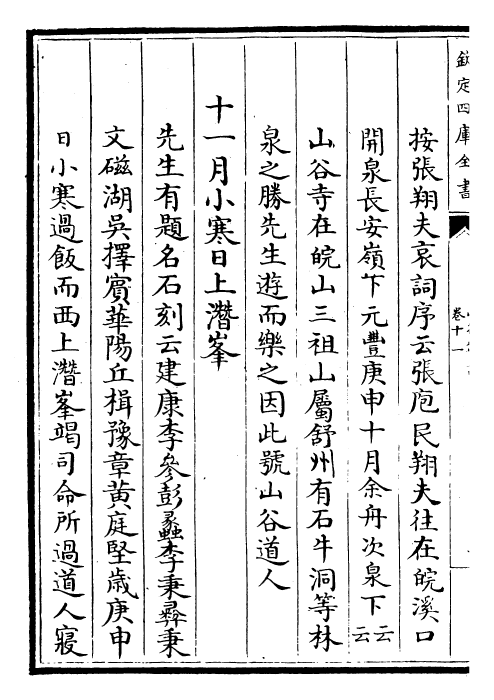 欽定四庫全書
卷十一
按張翔夫哀詞序云張庖民翔夫往在皖溪口
開泉長安嶺下元豐庚申十月余舟次泉下云云
山谷寺在皖山三祖山屬舒州有石牛洞等林
泉之勝先生遊而樂之因此號山谷道人
十一月小寒日上潛峯
先生有題名石刻云建康李參彭蠡李秉彛秉
文磁湖吳擇賓華陽丘楫豫章黄庭堅歲庚申
日小寒過飯而西上潛峯竭司命所過道人寢